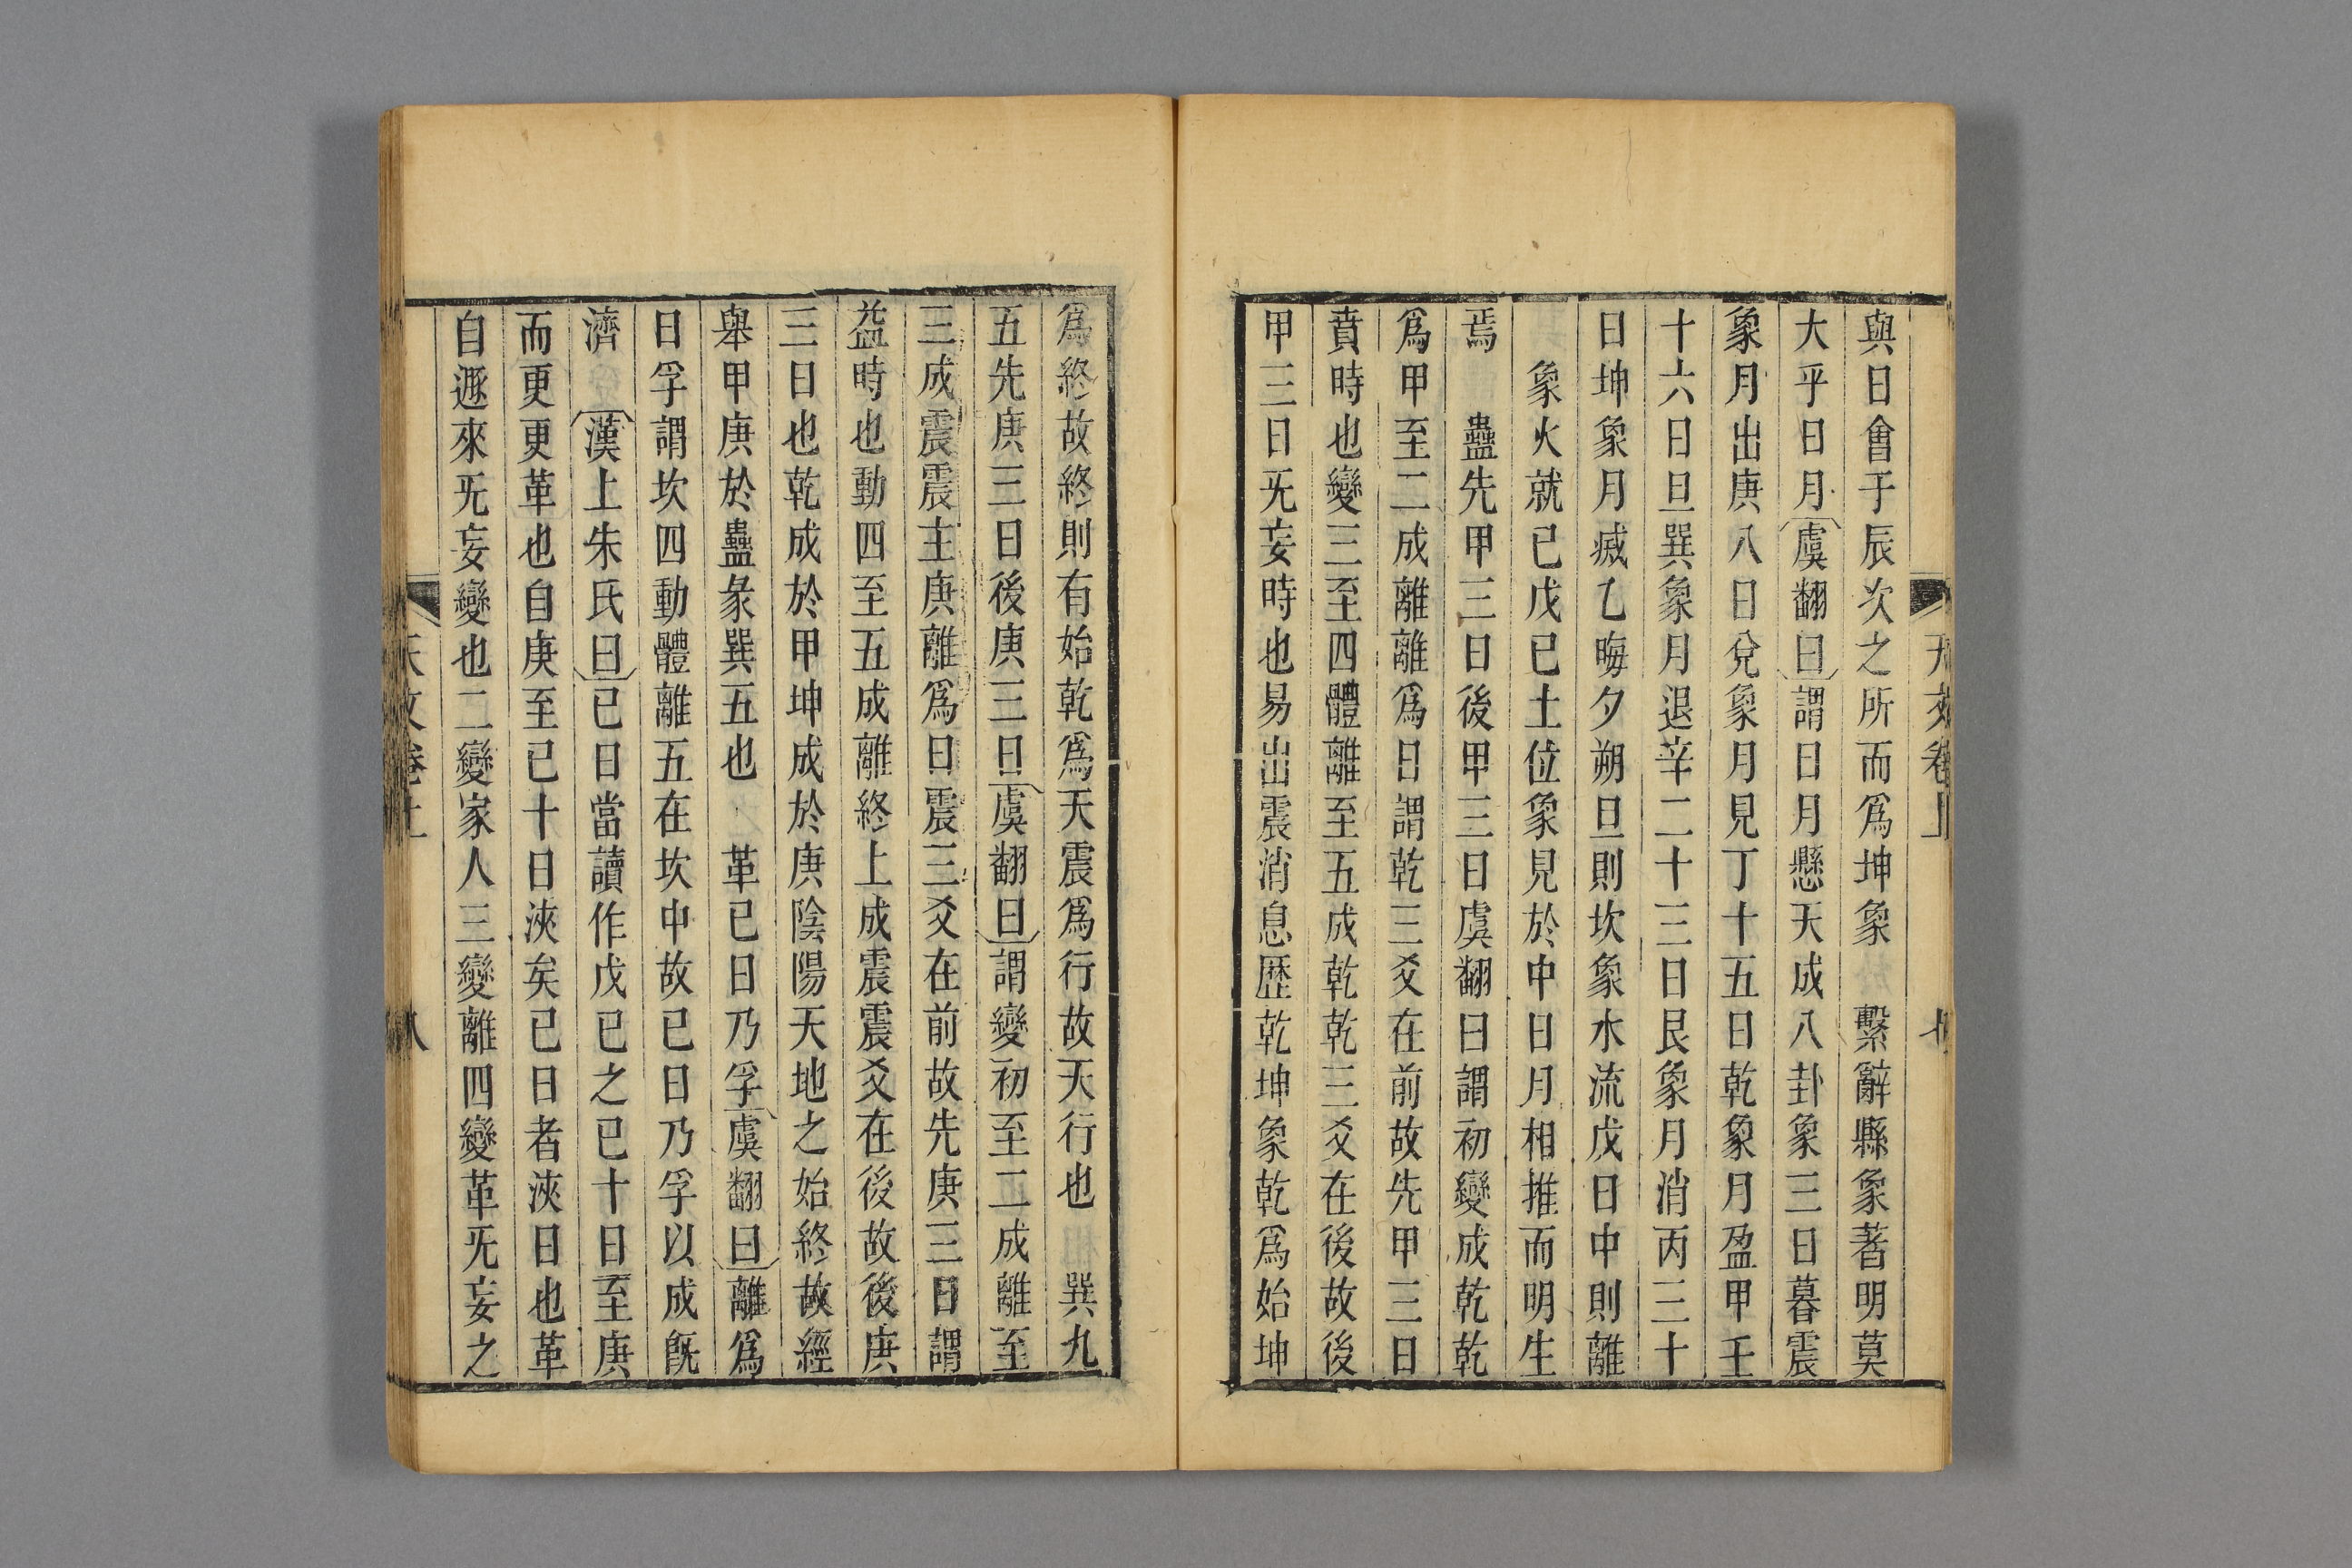 天文卷上
七
與日會于辰次之所而爲坤象　繫辭縣象著明莫
大乎日月虞翻曰謂日月懸天成八卦象三日暮震
象月出庚八日兌象月見丁十五日乾象月盈甲壬
十六日旦巽象月退辛二十三日艮象月消丙三十
日坤象月滅乙晦夕朔旦則坎象水流戊日中則離
象火就已戊已土位象見於中日月相推而明生
焉　蠱先甲三日後甲三日虞翻曰謂初變成乾乾
爲甲至二成離離爲日謂乾三爻在前故先甲三日
賁時也變三至四體離至五成乾乾三爻在後故後
甲三日旡妄時也易出震消息歷乾坤象乾爲始坤
爲終故終則有始乾爲天震爲行故天行也　巽九
五先庚三日後庚三日虞翻曰謂變初至二成離至
三成震震主庚離爲日震三爻在前故先庚三日謂
益時也動四至五成離終上成震震爻在後故後庚
三日也乾成於甲坤成於庚陰陽天地之始終故經
舉甲庚於蠱彖巽五也　革已日乃孚虞翻曰離爲
日孚謂坎四動體離五在坎中故已日乃孚以成旣
濟　漢上朱氏曰已日當讀作戊已之已十日至庚
而更更革也自庚至已十日浹矣已日者浹日也革
自遯來旡妄變也二變家人三變離四變革旡妄之
天文卷上
八